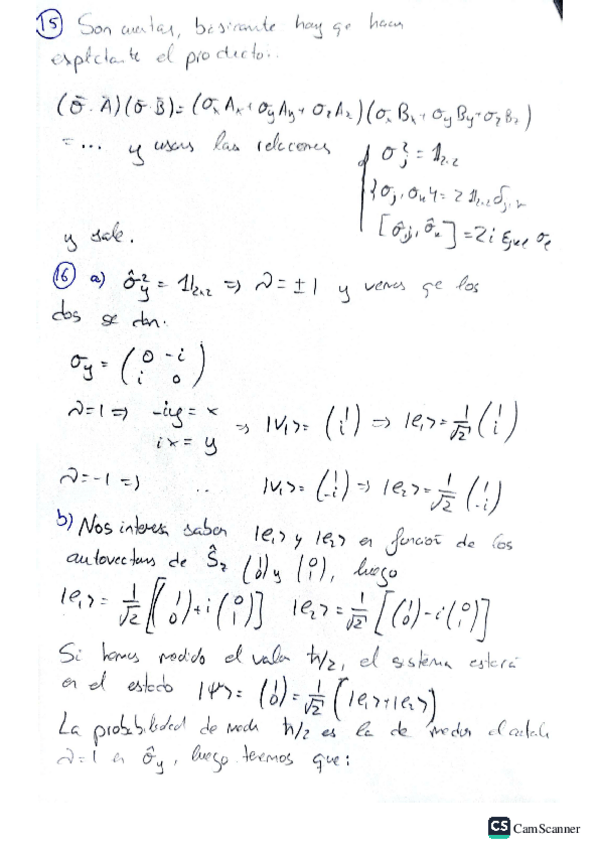 15 Son cuentas, básicamente hay que hacer
explícitamente el producto:
(σ̄·Ā)(σ̄·B̄) = (σₓAₓ + σᵧAᵧ + σ_zA_z)(σₓBₓ + σᵧBᵧ + σ_zB_z)
= ... y usas las relaciones
σⱼ² = 1₂ₓ₂
{σⱼ, σₖ} = 2 1₂ₓ₂ δⱼₖ
[σ̂ⱼ, σ̂ₖ] = 2i εⱼₖₑ σₑ
y sale.
16 a) σ̂ᵧ² = 1₂ₓ₂ => λ = ±1 y vemos que los
dos se dan.
σᵧ = (0 -i
i 0)
λ=1 => -iy = x
ix = y
=> |v₁> = (1 i) => |e₁> = 1/√2 (1 i)
λ=-1 => .. |v₁> = (1 -i) => |e₂> = 1/√2 (1 -i)
b) Nos interesa saber |e₁> y |e₂> en función de los
autovectores de Ŝ_z (1 0) y (0 1), luego
|e₁> = 1/√2 [(1 0) + i(0 1)] |e₂> = 1/√2 [(1 0) - i(0 1)]
Si hemos medido el valor ħ/2, el sistema estará
en el estado |Ψ> = (1 0) = 1/√2 (|e₁> + |e₂>)
La probabilidad de medir ħ/2 es la de medir el
λ=1 en σ̂ᵧ, luego tenemos que:
CS CamScanner